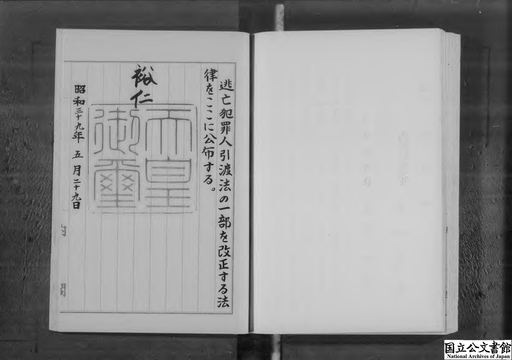 逃亡犯罪人引渡法の一部を改正する法
律をここに公布する。
裕仁
天皇
御璽
昭和三十九年五月二十九日
国立公文書館
National Archives of Japan